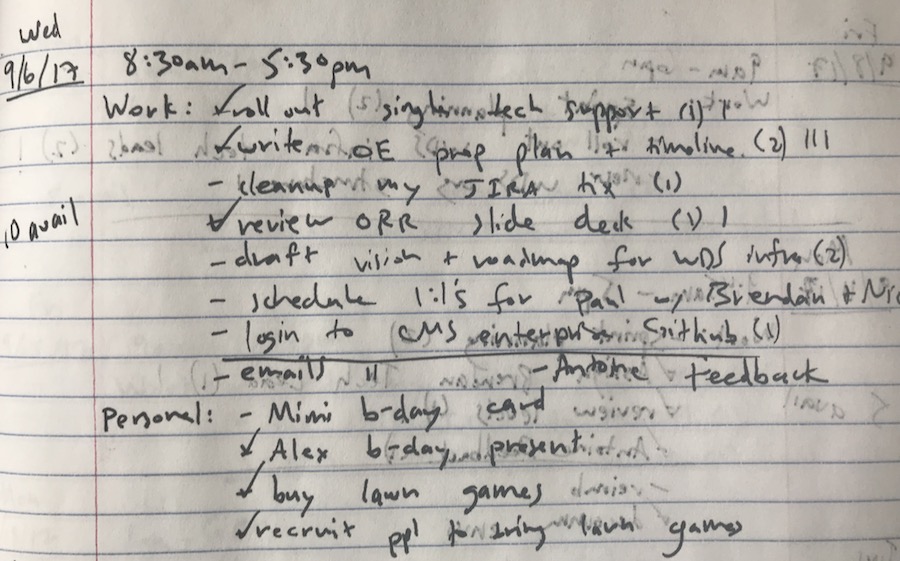 Wed
9/6/17 8:30am - 5:30pm
Work: ✓ roll out tech support (1) 1
✓ write OE prep plan + timeline (2) 111
- cleanup my JIRA tix (1)
10 avail ✓ review ORR slide deck (1) 1
- draft vision + roadmap for WDS infra (2)
- schedule 1:1's for Paul w/ Brendan + Nic
- login to CMS enterprise Github (1)
- emails 11 - Antoine feedback
Personal: - Mimi b-day card
✓ Alex b-day present
✓ buy lawn games
✓ recruit ppl to bring lawn games